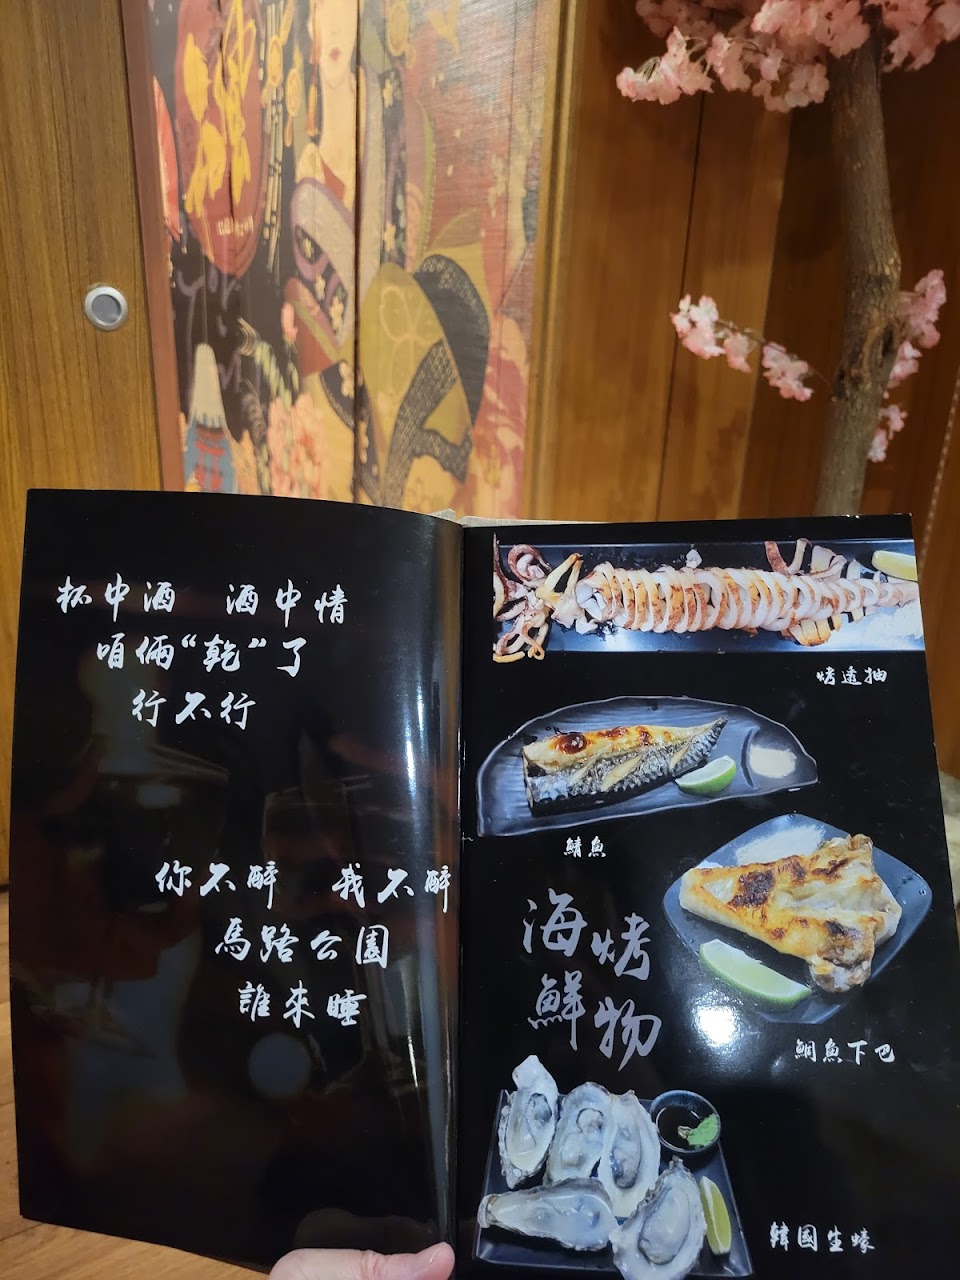 杯中酒 酒中情
咱倆“乾”了
行不行
你不醉 我不醉
馬路公園
誰來睡
烤透抽
鯖魚
海鮮
烤物
鯛魚下巴
韓國生蠔